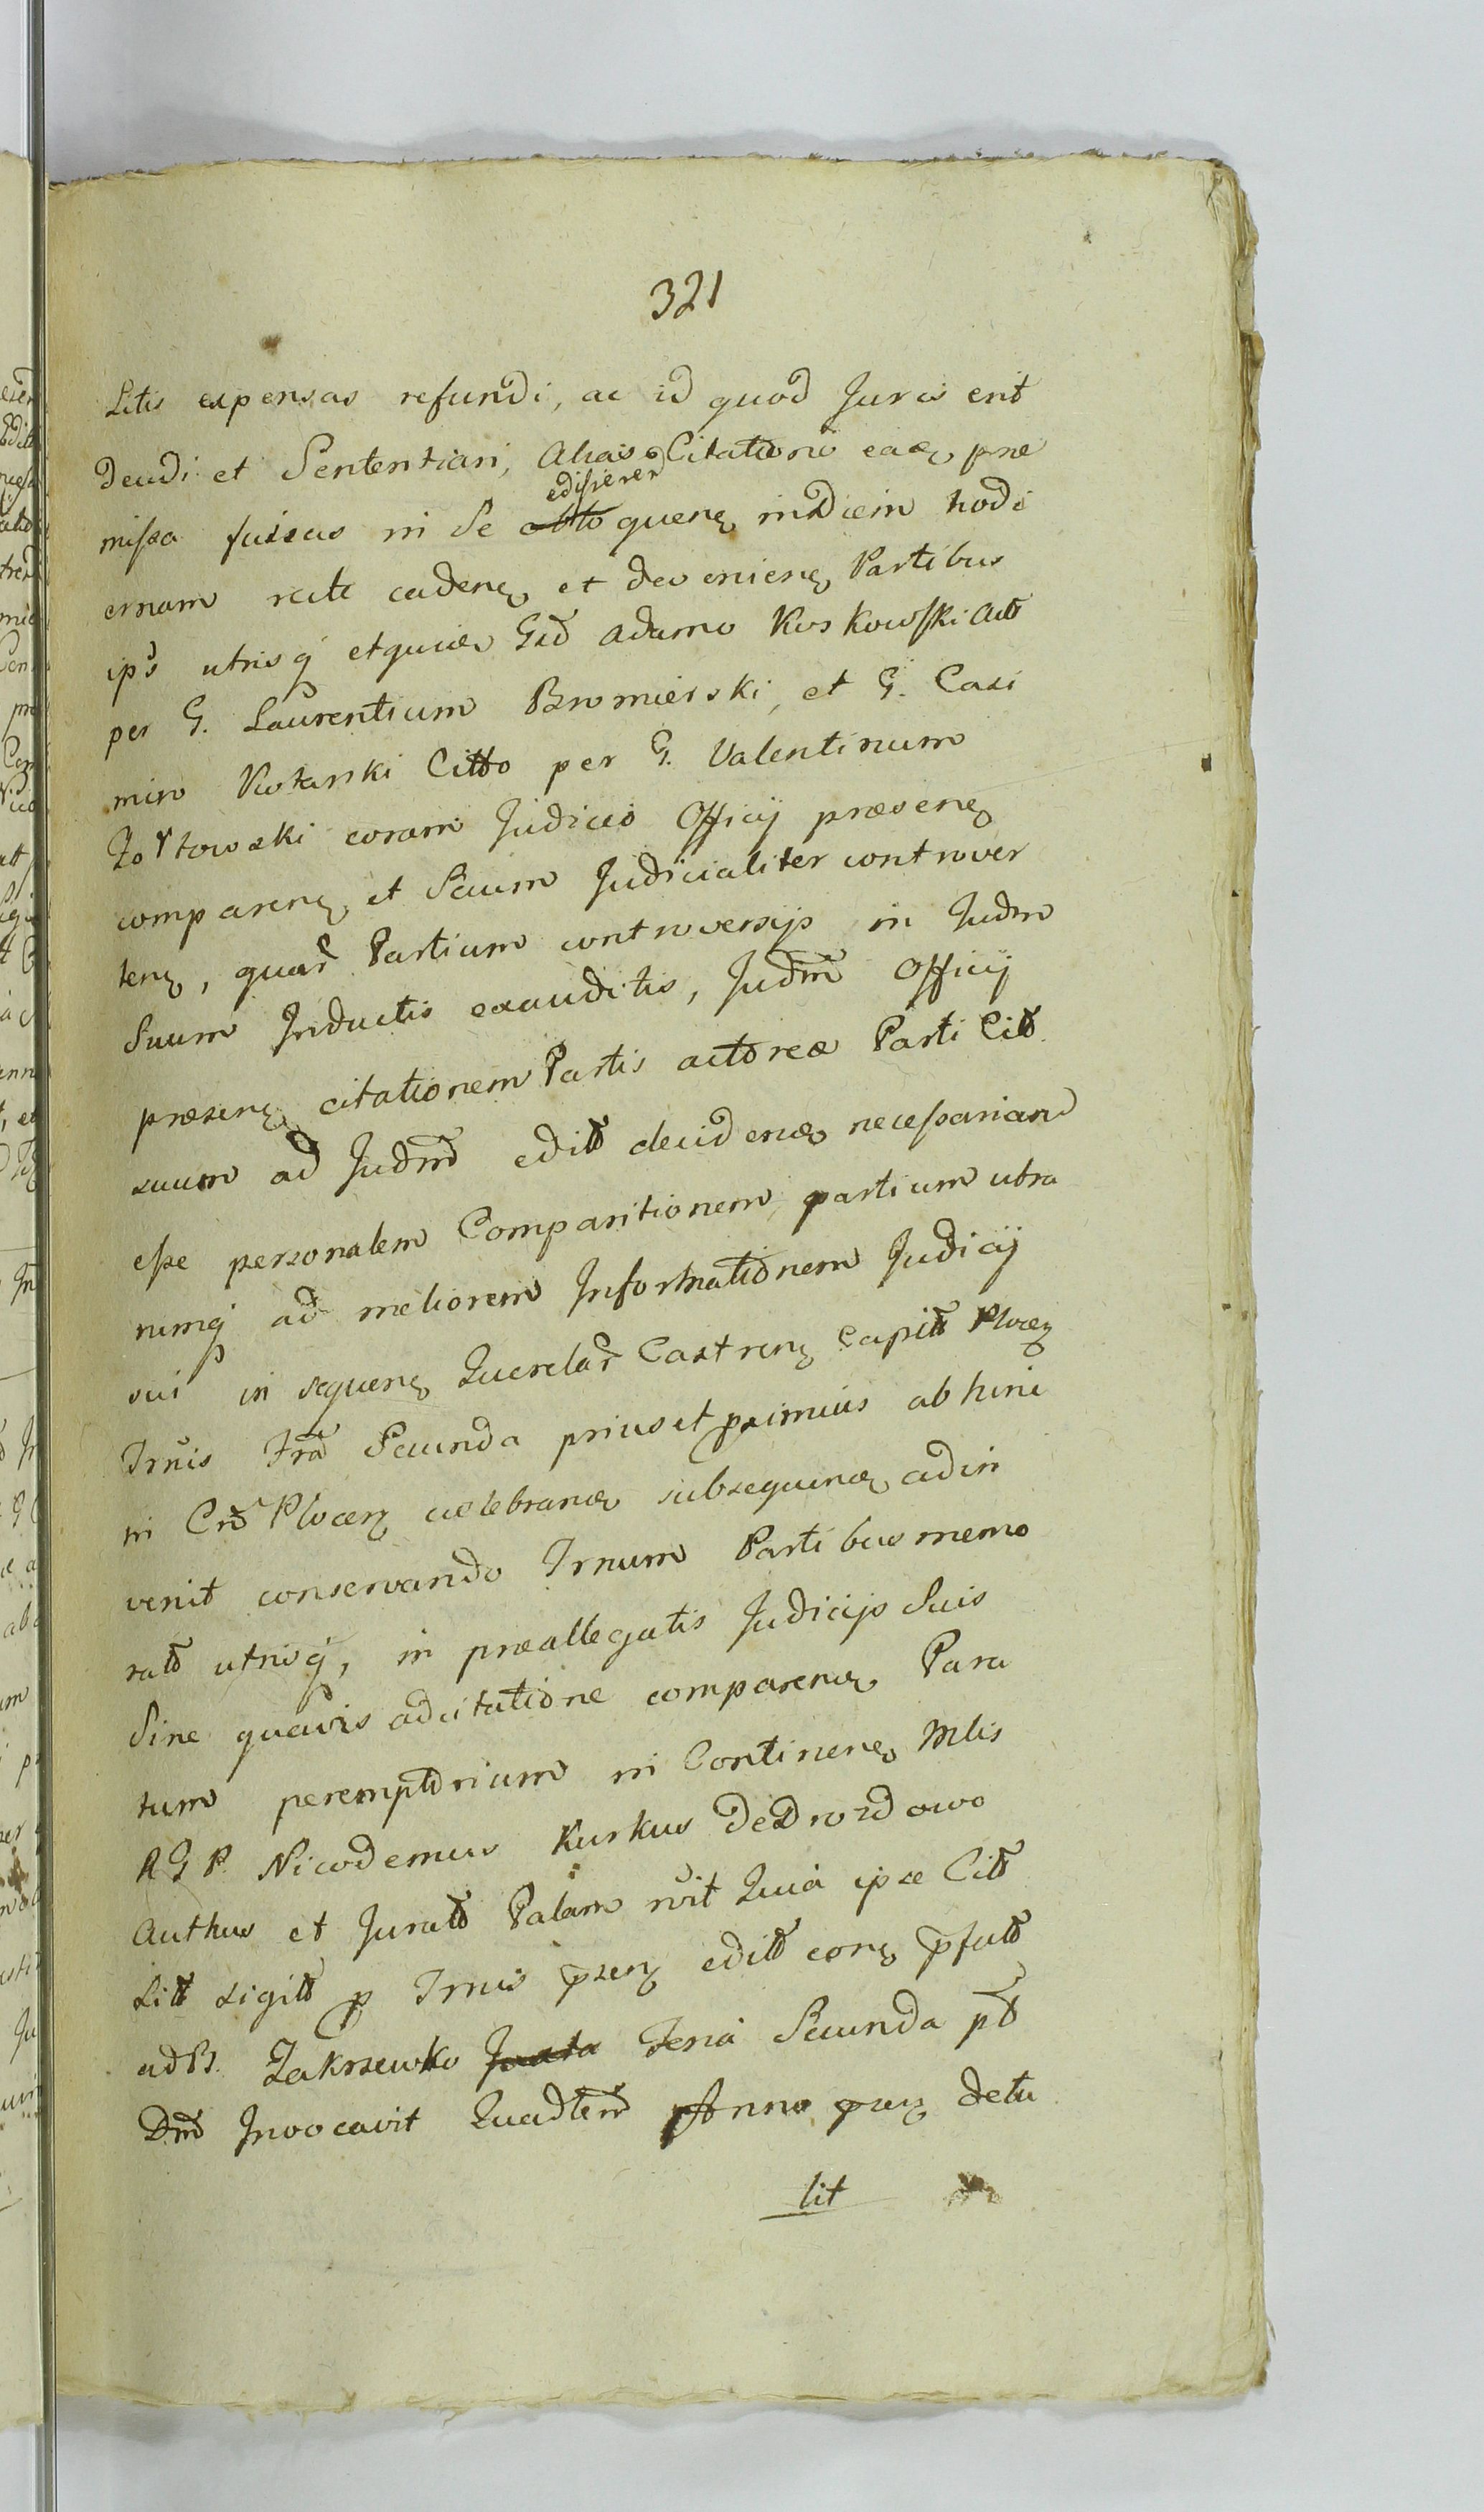 321
Litis expensas refundi, ac id quod Juris erit
decidi et Sententiari, Alias Citatione eadē præ
missa fusius in Se edisseren quenȝ in diem hodi
ernam rite cadenȝ et devenienȝ Partibus
ips utrisqꝫ Gđ Adamo Koskowski Actt
per G. Laurentium Bromierski, et G. Casi
miro Kotarski Citto per G. Valentinum
Zołtowski coram Judicio Officij præsenȝ
comparenȝ et Secum Judicialiter controver
tenȝ, quar Partium controversijs in Judm
Suum Inductis exauditis, Judm Officij
præsenȝ citationem Partis actoreæ Parti Citt.
suum ad Judm editt decidenȝ necessariam
esse personalem Comparitionem partium utra
rumqꝫ ad meliorem Informationem Judicij
sui in sequenȝ Querelar Castrenȝ Capitt Plocenȝ
Trnis Fra Secunda prius et proximius ab hinc
in Crō Plocenȝ celebranȝ subsequenȝ adin
venit conservando Trnum Partibus memo
ratt utrisqꝫ, in præallegatis Judicijs Suis
Sine quavis adcitatione comparenȝ Para
tum peremptorium in Continenȝ Mlis
R G P. Nicodemus Kurkus de Drozdowo
Authus et Juratt Palam rvit Quia ipse Citt
Litt sigitt p Trnis przenȝ editt conȝ pfatt
ad B. Zakrzewko Feria Secunda pt
Dm Invocavit Quadlem Anno przenȝ detu
lit